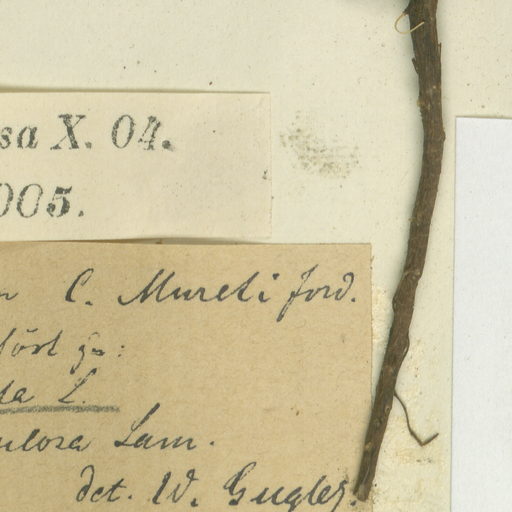 sa X. 04.
005.
C. Mureti Jord.
hört zu:
sa L.
ulosa Lam.
det. W. Gugler.